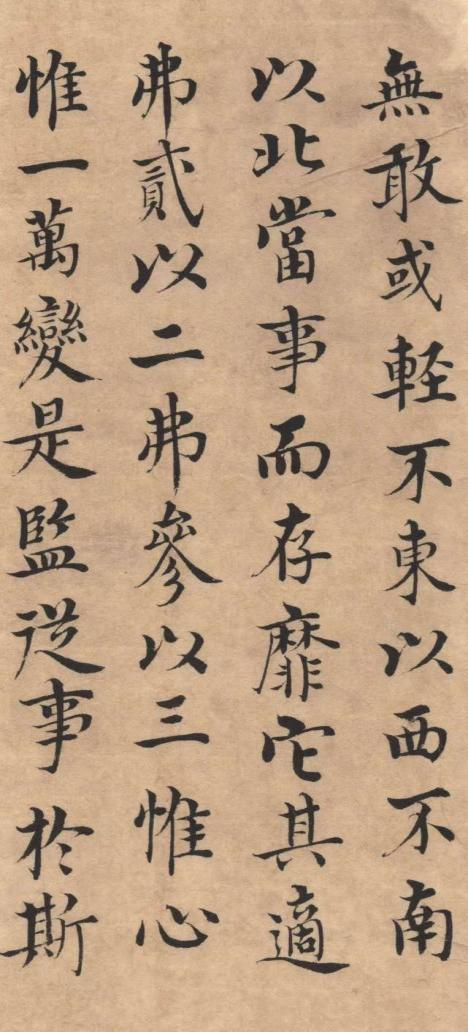 無敢或軽不東以西不南
以北當事而存靡它其適
弗貳以二弗參以三惟心
惟一萬變是監従事於斯